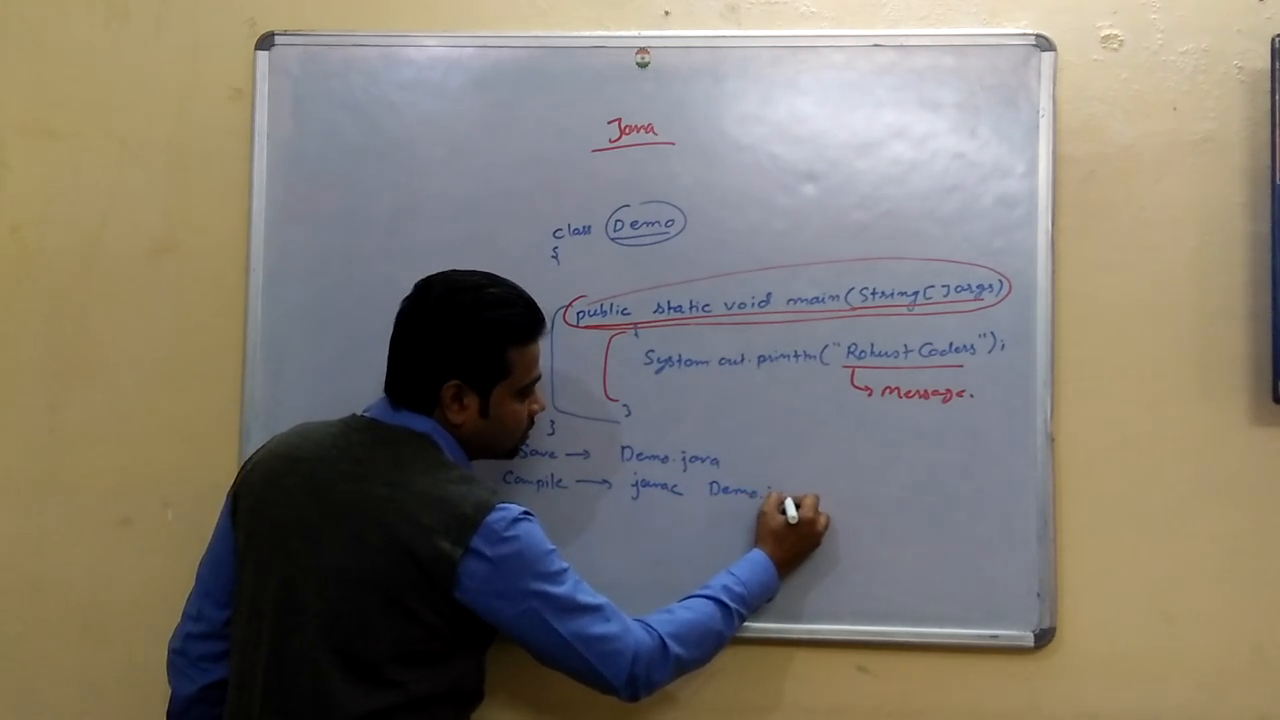 Java
class Demo
{
public static void main(String[]args)
{
System.out.println("Robust Coders");
message.
}
}
Save → Demo.java
Compile → javac Demo.j